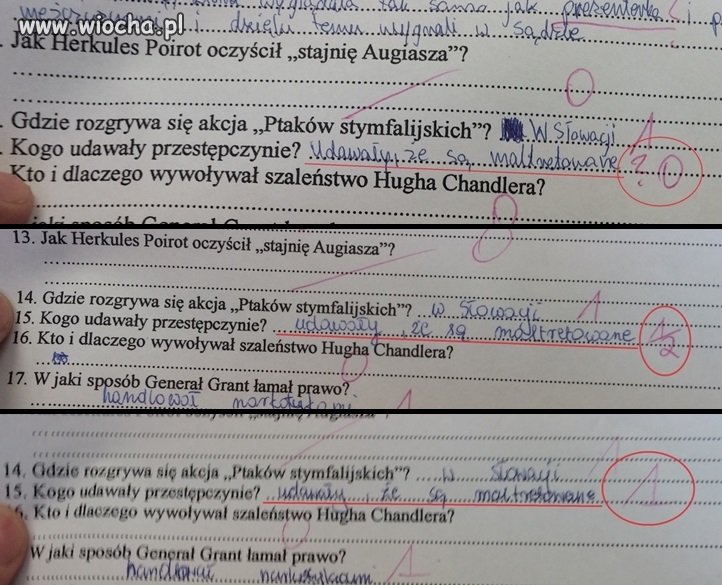 wyglądała tak samo jak prezenterka i p
mężczyznami i dzięki temu wygrali w sądzie
www.wiocha.pl
. Jak Herkules Poirot oczyścił „stajnię Augiasza”?
0
. Gdzie rozgrywa się akcja „Ptaków stymfalijskich”? W Słowacji 1
. Kogo udawały przestępczynie? Udawały, że są maltretowane ? 0
Kto i dlaczego wywoływał szaleństwo Hugha Chandlera?
0
13. Jak Herkules Poirot oczyścił „stajnię Augiasza”?
14. Gdzie rozgrywa się akcja „Ptaków stymfalijskich”? w Słowacji 1
15. Kogo udawały przestępczynie? udawały, że są maltretowane 1/2
16. Kto i dlaczego wywoływał szaleństwo Hugha Chandlera?
0
17. W jaki sposób Generał Grant łamał prawo?
handlował narkotykami 1
14. Gdzie rozgrywa się akcja „Ptaków stymfalijskich”? w Słowacji 1
15. Kogo udawały przestępczynie? udawały, że są maltretowane 1
6. Kto i dlaczego wywoływał szaleństwo Hugha Chandlera?
0
W jaki sposób Generał Grant łamał prawo?
handlował 1